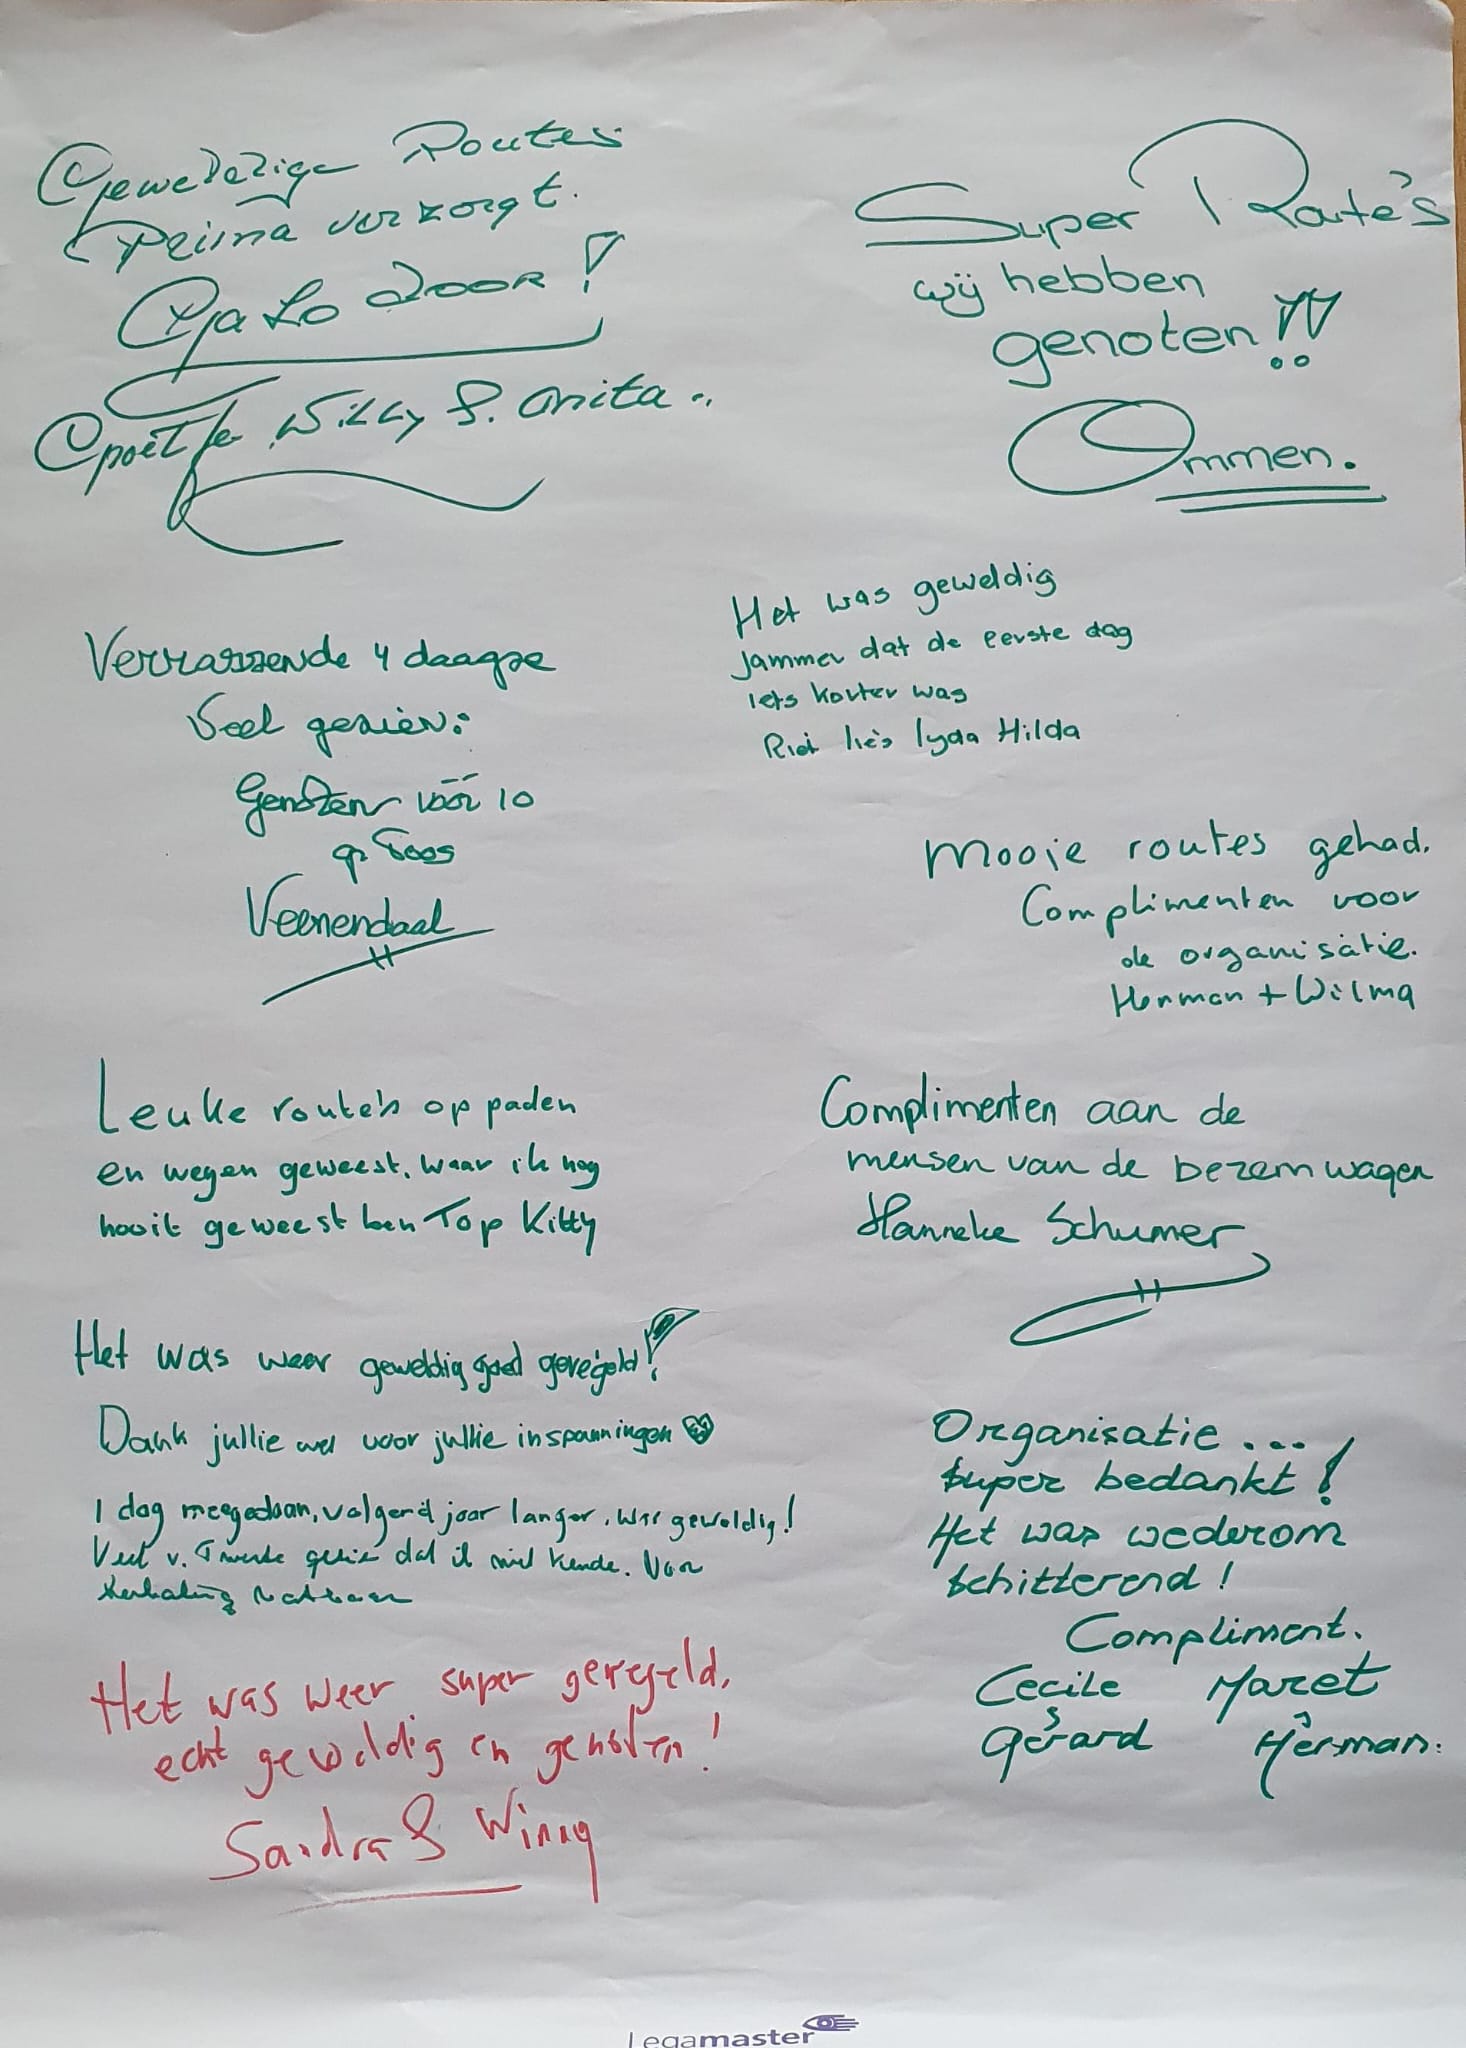 Geweldige Routes
Prima verzorgt.
Ga zo door!
Groetje Willy & Anita..
Super Route's
wij hebben
genoten!!
Ommen.
Verrassende 4 daagse
Veel gezien:
Genoten vóór 10
Veenendaal
Het was geweldig
Jammer dat de eerste dag
iets korter was
Riet lies lyda Hilda
Mooie routes gehad.
Complimenten voor
de organisatie.
Herman + Wilma
Leuke route's op paden
en wegen geweest. waar ik nog
nooit geweest ben Top Kitty
Complimenten aan de
mensen van de bezemwagen
Hanneke Schumer
Het was weer geweldig goed geregeld!
Dank jullie wel voor jullie inspanningen
1 dag meegedaan, volgend jaar langer. Was geweldig!
Veel v. Twente gezien dat ik niet kende. Voor
herhaling vatbaar
Organisatie ...
super bedankt!
Het was wederom
schitterend!
Compliment.
Cecile Maret
Gérard Herman.
Het was weer super geregeld,
echt geweldig en genoten!
Sandra & Winny
Legamaster